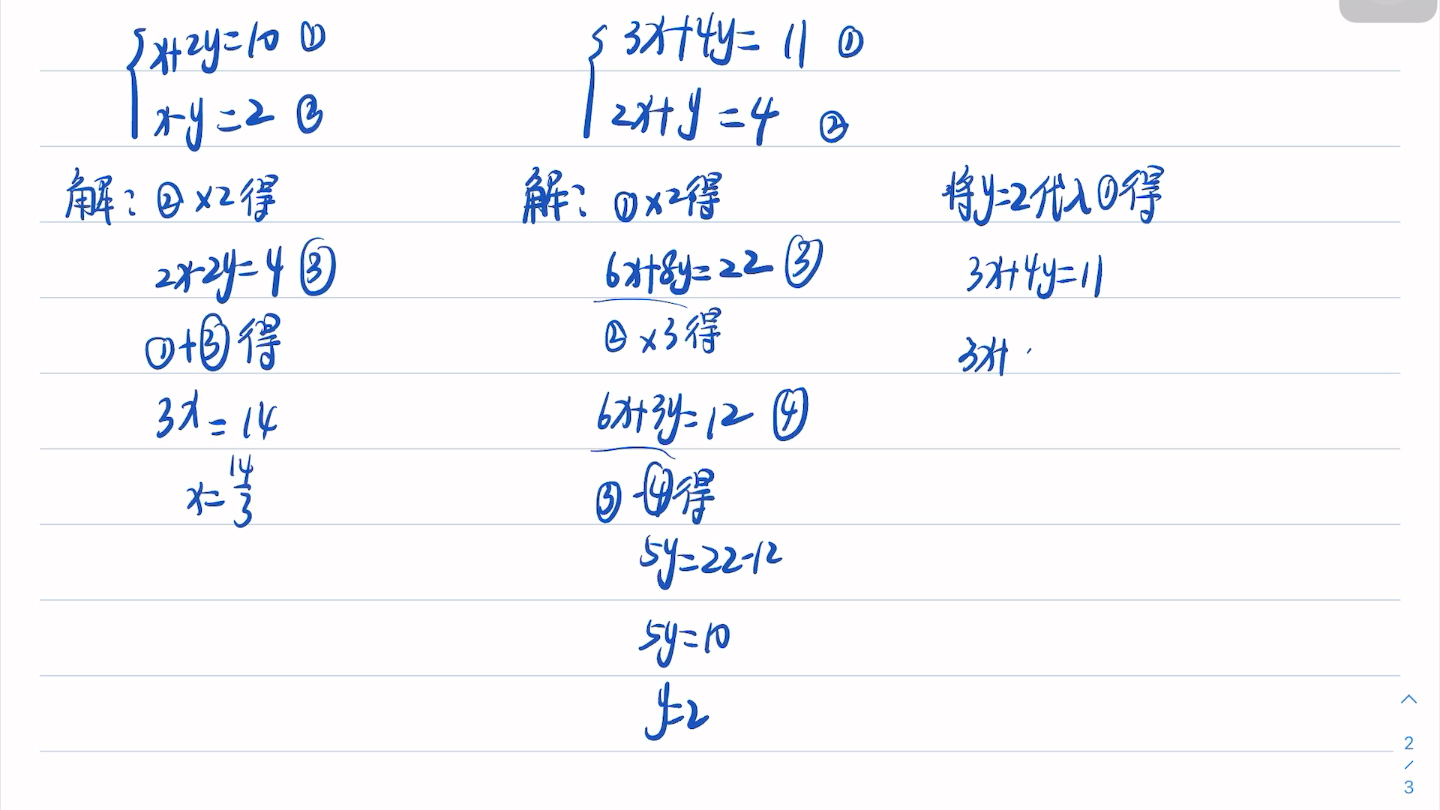 x+2y=10 ①
x-y=2 ②
解: ②×2得
2x-2y=4 ③
①+③得
3x=14
x=14/3
3x+4y=11 ①
2x+y=4 ②
解: ①×2得
6x+8y=22 ③
②×3得
6x+3y=12 ④
③-④得
5y=22-12
5y=10
y=2
将y=2代入①得
3x+4y=11
3x+
2
/
3